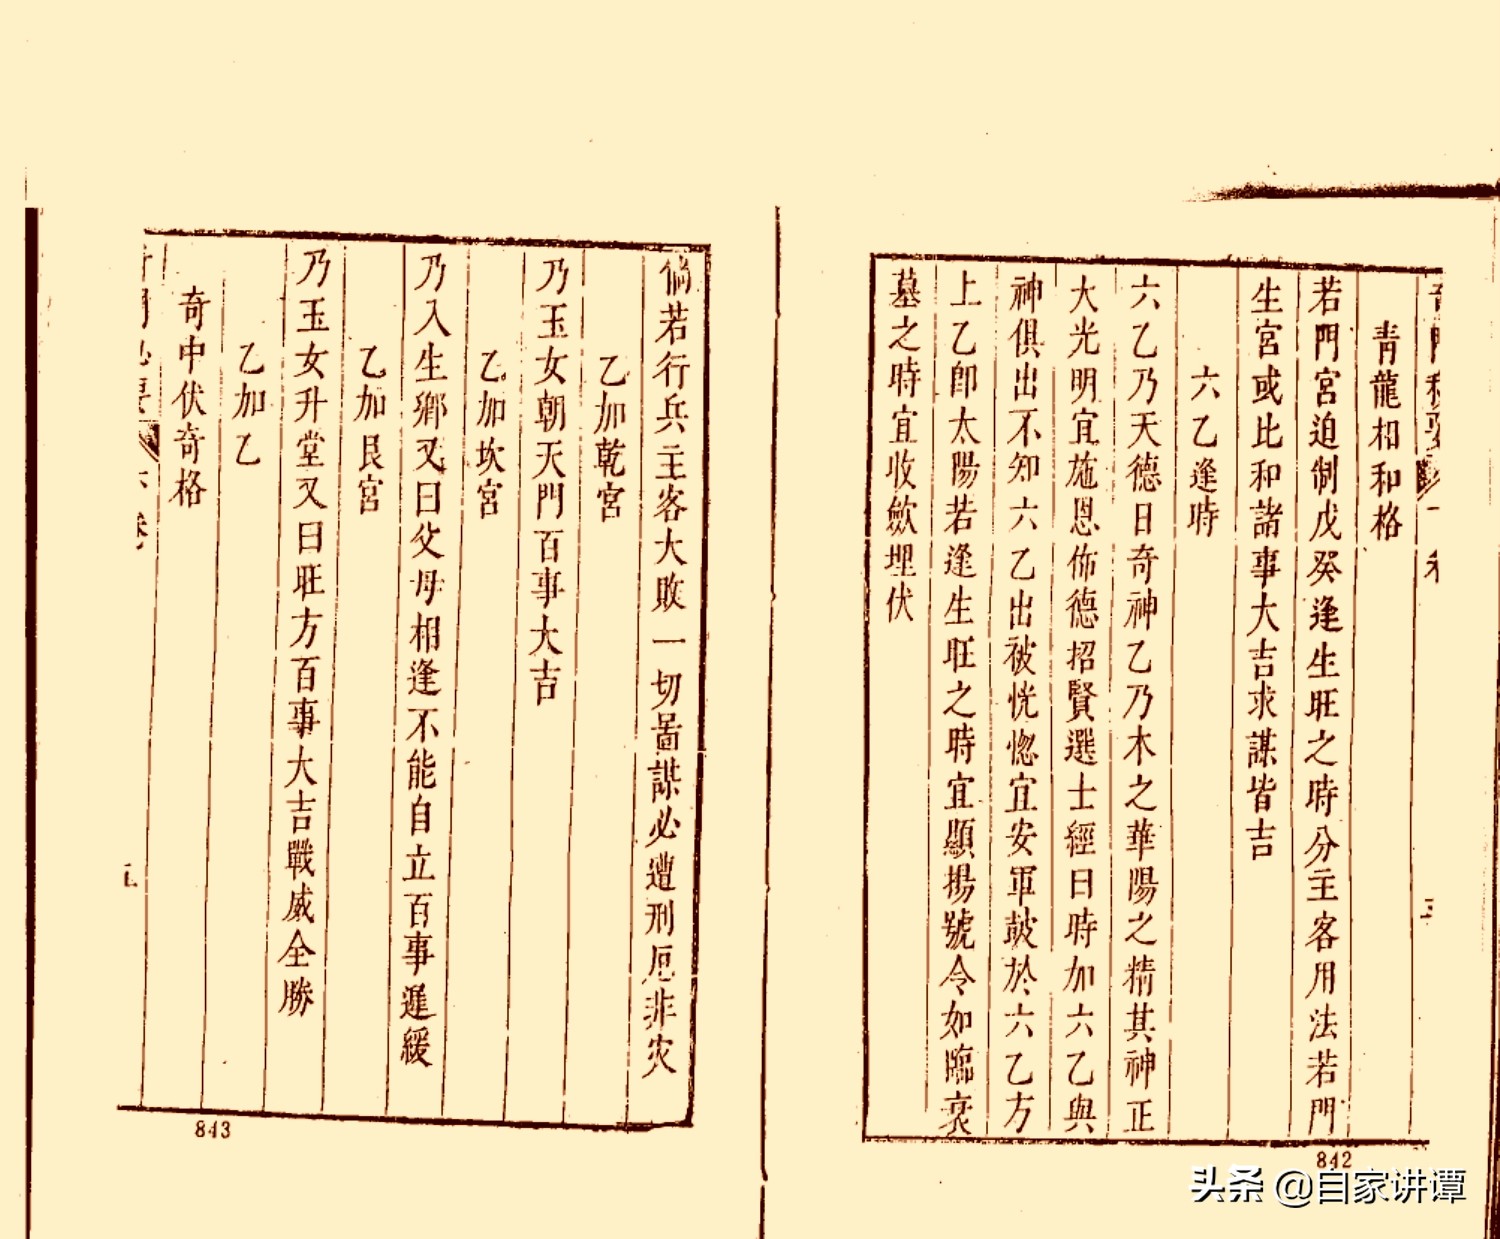 青龍相和格
若門宮迫制戊癸逢生旺之時分主客用法若門
生宮或比和諸事大吉求謀皆吉
六乙逢時
六乙乃天德日奇神乙乃木之華陽之精其神正
大光明宜施恩佈德招賢選士經曰時加六乙與
神俱出不知六乙出被恍惚宜安軍鼓於六乙方
上乙卽太陽若逢生旺之時宜顯揚號令如臨衰
墓之時宜收斂埋伏
842
倘若行兵主客大敗一切啚謀必遭刑厄非灾
乙加乾宮
乃玉女朝天門百事大吉
乙加坎宮
乃入生鄉又曰父母相逢不能自立百事遲緩
乙加艮宮
乃玉女升堂又曰旺方百事大吉戰威全勝
乙加乙
奇中伏奇格
843
头条 @自家讲谭